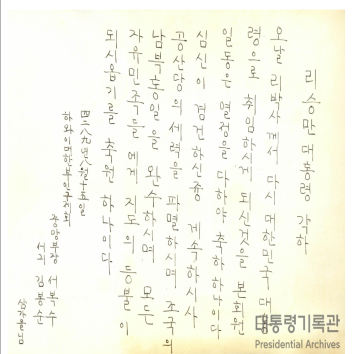 리승만대통령 각하
오날 리박사께서 다시 대한민국 대
령으로 취임하시게 되신것을 본회원
일동은 열정을 다하야 축하하나이다
심신이 경건하신중 계속하시사
공산당의 세력을 파멸하시며 조국의
남북통일을 완수하시며 모든
자유민족들에게 지도의 등불이
되시옵기를 축원하나이다
四二八九년八월十五일
하와이대한부인구제회
중앙부장 서복수
서기 김봉순
삼가올님
대통령기록관
Presidential Archives